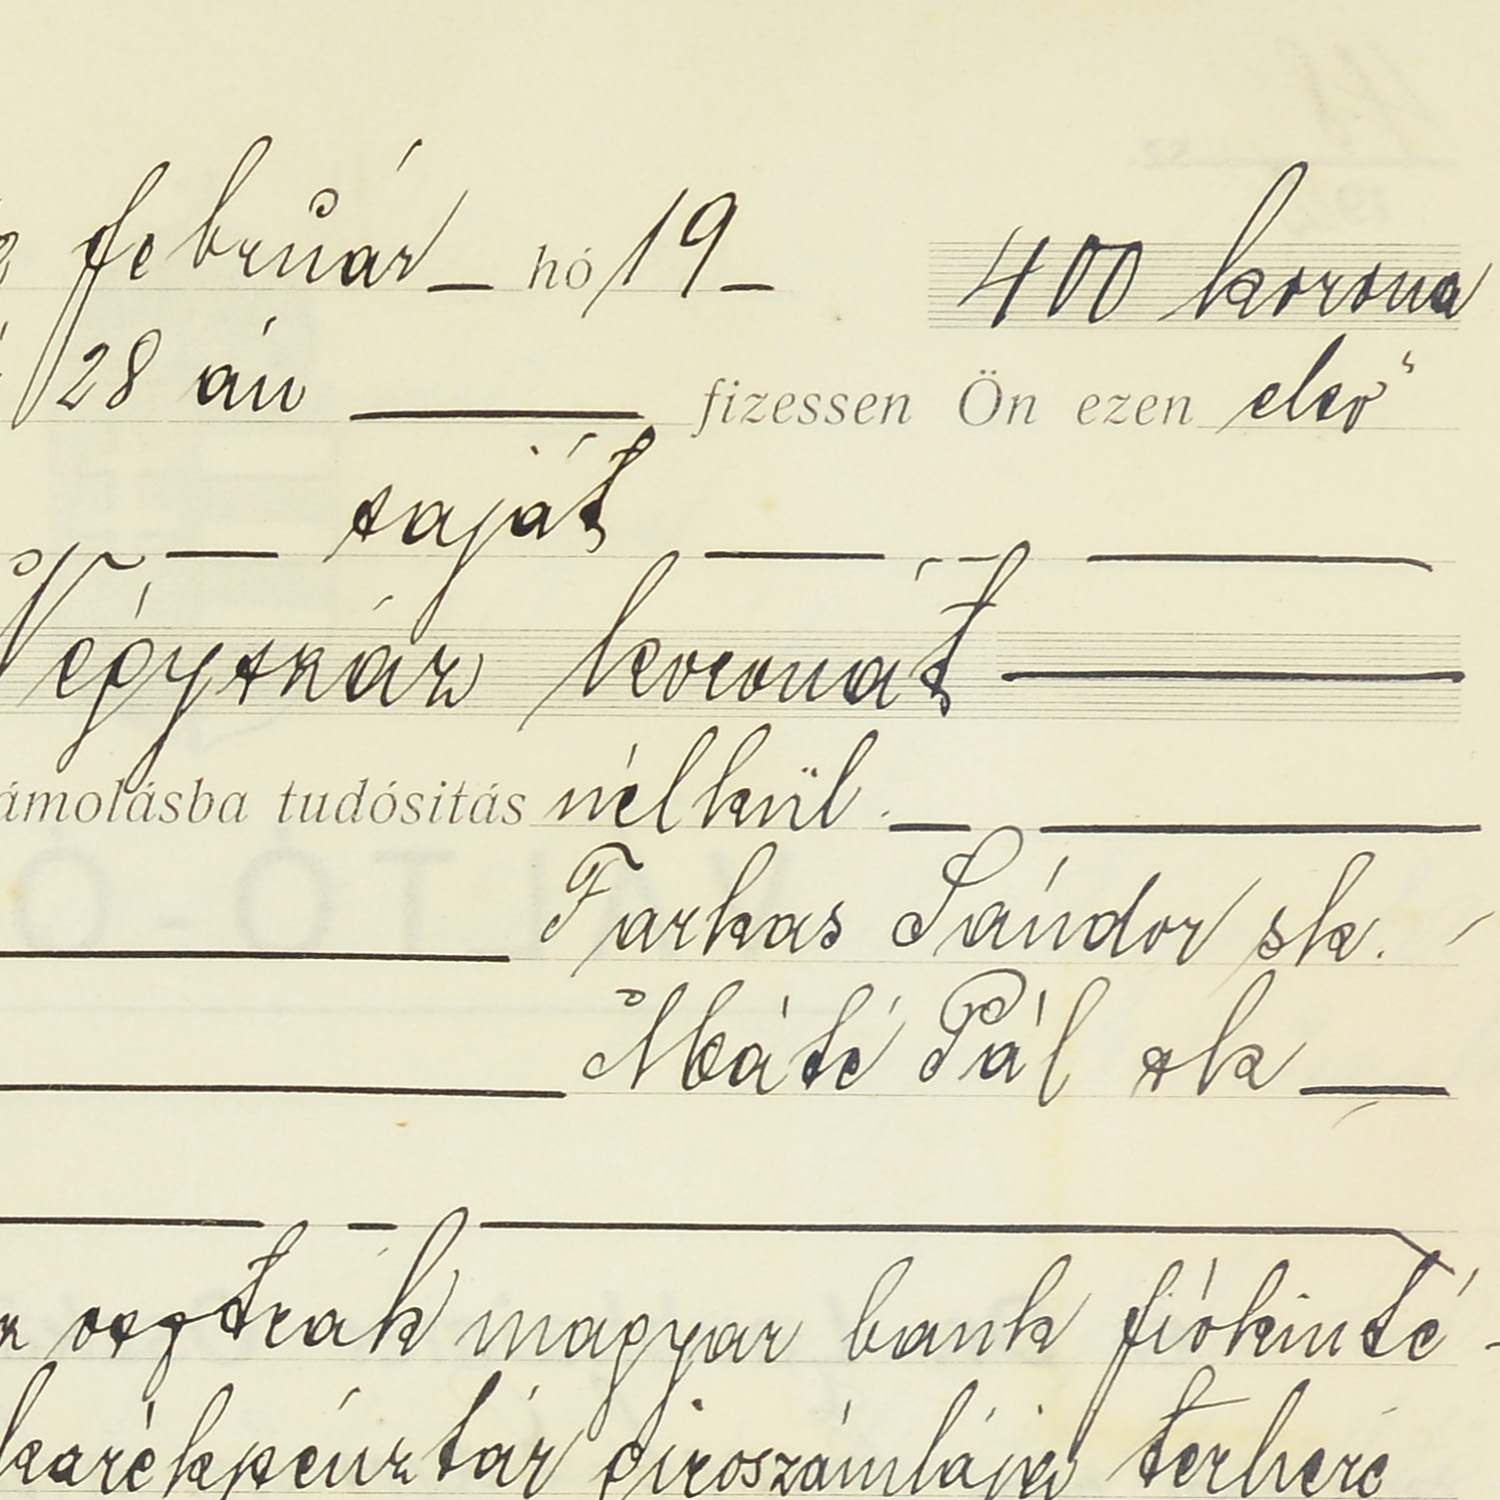 február hó 19 400 korona
28 án fizessen Ön ezen első
saját
Négyszáz koronát
ámolásba tudósitás nélkül.
Farkas Sándor sk.
Máté Pál sk
osztrák magyar bank fiókinté-
karékpénztár giroszámlája terhére